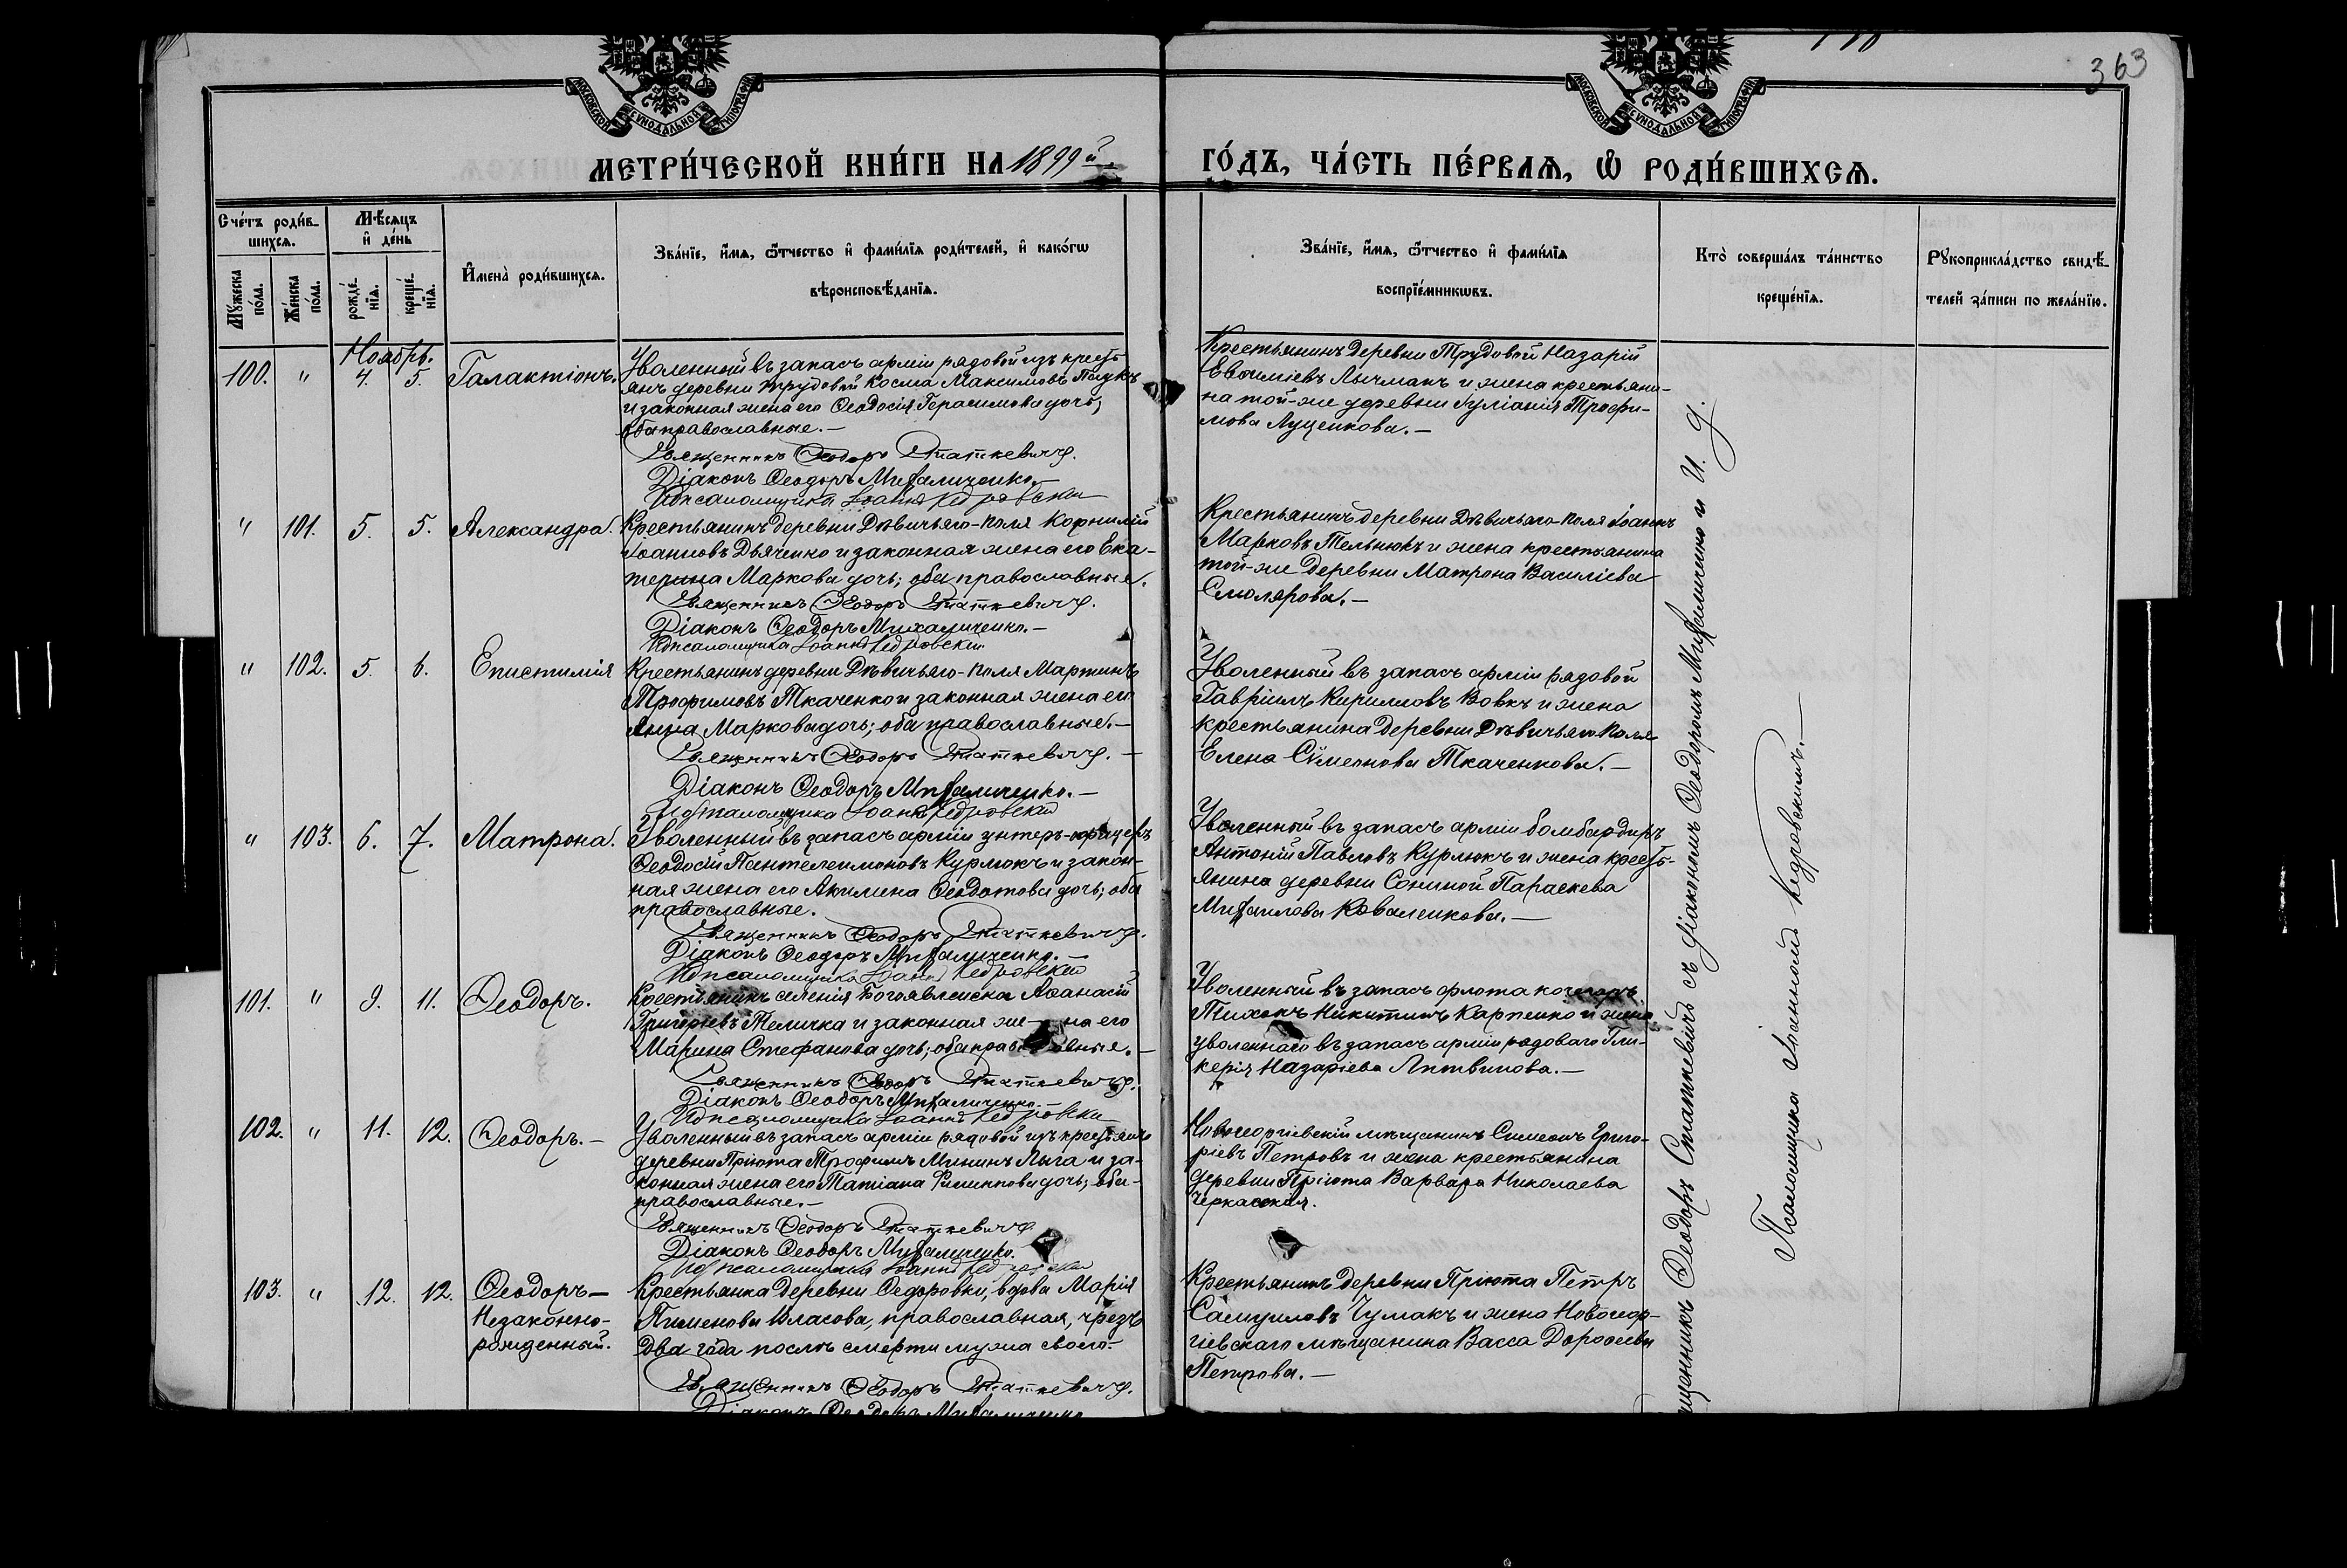 363
МОСКОВСКОЙ СѴНОДАЛЬНОЙ ТИПОГРАФІИ
МОСКОВСКОЙ СѴНОДАЛЬНОЙ ТИПОГРАФІИ
МЕТРИ́ЧЕСКОЙ КНИ́ГИ НА 1899й
ГО́ДЪ, ЧА́СТЬ ПЕ́РВАѦ, Ѡ҆ РОДИ́ВШИХСѦ.
Сче́тъ роди́в-
шихсѧ.
Мꙋ́жеска по́ла.
Же́нска по́ла.
Мѣ́сѧцъ
и҆ де́нь
рожде́-
нїѧ.
креще́-
нїѧ.
И҆мена̀ роди́вшихсѧ.
Зва́нїе, и҆́мѧ, ѻ҆́тчество и҆ фами́лїѧ роди́телей, и҆ како́гѡ
вѣроисповѣ́данїѧ.
Зва́нїе, и҆́мѧ, ѻ҆́тчество и҆ фами́лїѧ
воспрїе́мникѡвъ.
Кто̀ соверша́лъ та́инство
креще́нїѧ.
Рꙋкоприкла́дство свидѣ́-
телей за́писи по жела́нїю.
Ноябрь.
100. " 4. 5. Галактіонъ.
Уволенный въ запасъ арміи рядовой изъ кресть
янъ деревни Трудовой Косма Максимовъ
и законная жена его Ѳеодосія Герасимова дочь;
оба православные.—
Священникъ Ѳеодоръ Статкевичъ.
Діаконъ Ѳеодоръ Михаличенко.—
И д псаломщика Іоаннъ Кедровскій
Крестьянинъ деревни Трудовой Назарій
Евѳиміевъ Лычманъ и жена крестьяни-
на той-же деревни Іуліанія Трофи-
мова Луценкова.—
" 101. 5. 5. Александра.
Крестьянинъ деревни Дѣвичьяго-поля Корнилій
Іоанновъ Дьяченко и законная жена его Ека-
терина Маркова дочь; оба православные.
Священникъ Ѳеодоръ Статкевичъ.
Діаконъ Ѳеодоръ Михаличенко.—
И д псаломщика Іоаннъ Кедровскій
Крестьянинъ деревни Дѣвичьяго-поля Іоаннъ
Марковъ Тельнюкъ и жена крестьянина
той-же деревни Матрона Василіева
Смолярова.—
" 102. 5. 6. Епистимія
Крестьянинъ деревни Дѣвичьяго-поля Мартинъ
Трофимовъ Ткаченко и законная жена его
Анна Маркова дочь; оба православные.—
Священникъ Ѳеодоръ Статкевичъ.—
Діаконъ Ѳеодоръ Михаличенко.—
И д псаломщика Іоаннъ Кедровскій
Уволенный въ запасъ арміи рядовой
Гавріилъ Кирилловъ Вовкъ и жена
крестьянина деревни Дѣвичьяго-поля
Елена Сѵмеонова Ткаченкова.—
" 103. 6. 7. Матрона.
Уволенный въ запасъ арміи унтеръ-офицеръ
Ѳеодосій Пантелеимоновъ Курлюкъ и закон-
ная жена его Акилина Ѳеодотова дочь; оба
православные.
Священникъ Ѳеодоръ Статкевичъ.
Діаконъ Ѳеодоръ Михаличенко.—
И д псаломщика Іоаннъ Кедровскій
Уволенный въ запасъ арміи бомбардиръ
Антоній Павловъ Курлюкъ и жена кресть-
янина деревни Сониной Параскева
Михаилова Коваленкова.—
101. " 9. 11. Ѳеодоръ.
Крестьянинъ селенія Богоявленска Аѳанасій
Григоріевъ Теличка и законная жена его
Марина Стефанова дочь; оба православные.—
Священникъ Ѳеодоръ Статкевичъ.
Діаконъ Ѳеодоръ Михаличенко.
И д псаломщика Іоаннъ Кедровскій
Уволенный въ запасъ флота кочегаръ
Тихонъ Никитинъ Карпенко и жена
уволеннаго въ запасъ арміи рядоваго Гли-
керія Назаріева Литвинова.—
102. " 11. 12. Ѳеодоръ.—
Уволенный въ запасъ арміи рядовой изъ крестьянъ
деревни Пріюта Трофимъ Мининъ Лыга и за-
конная жена его Татіана Филиппова дочь; оба-
православные.—
Священникъ Ѳеодоръ Статкевичъ
Діаконъ Ѳеодоръ Михаличенко.
И д псаломщика Іоаннъ Кедровскій
Новогеоргіевскій мѣщанинъ Симеонъ Григо-
ріевъ Петровъ и жена крестьянина
деревни Пріюта Варвара Николаева
Черкасская.
103. " 12. 12. Ѳеодоръ—
Незаконно-
рожденный.
Крестьянка деревни Ѳедоровки, вдова Марія
Пименова Власова, православная, чрезъ
два года послѣ смерти мужа своего.—
Священникъ Ѳеодоръ Статкевичъ.
Діаконъ Ѳеодоръ Михаличенко
Крестьянинъ деревни Пріюта Петръ
Самуиловъ Чумакъ и жена Новогеор-
гіевскаго мѣщанина Васса Дороѳеева
Петрова.—
Священникъ Ѳеодоръ Статкевичъ съ діакономъ Ѳеодоромъ Михаличенко и И. д.
Псаломщика Іоанномъ Кедровскимъ.—